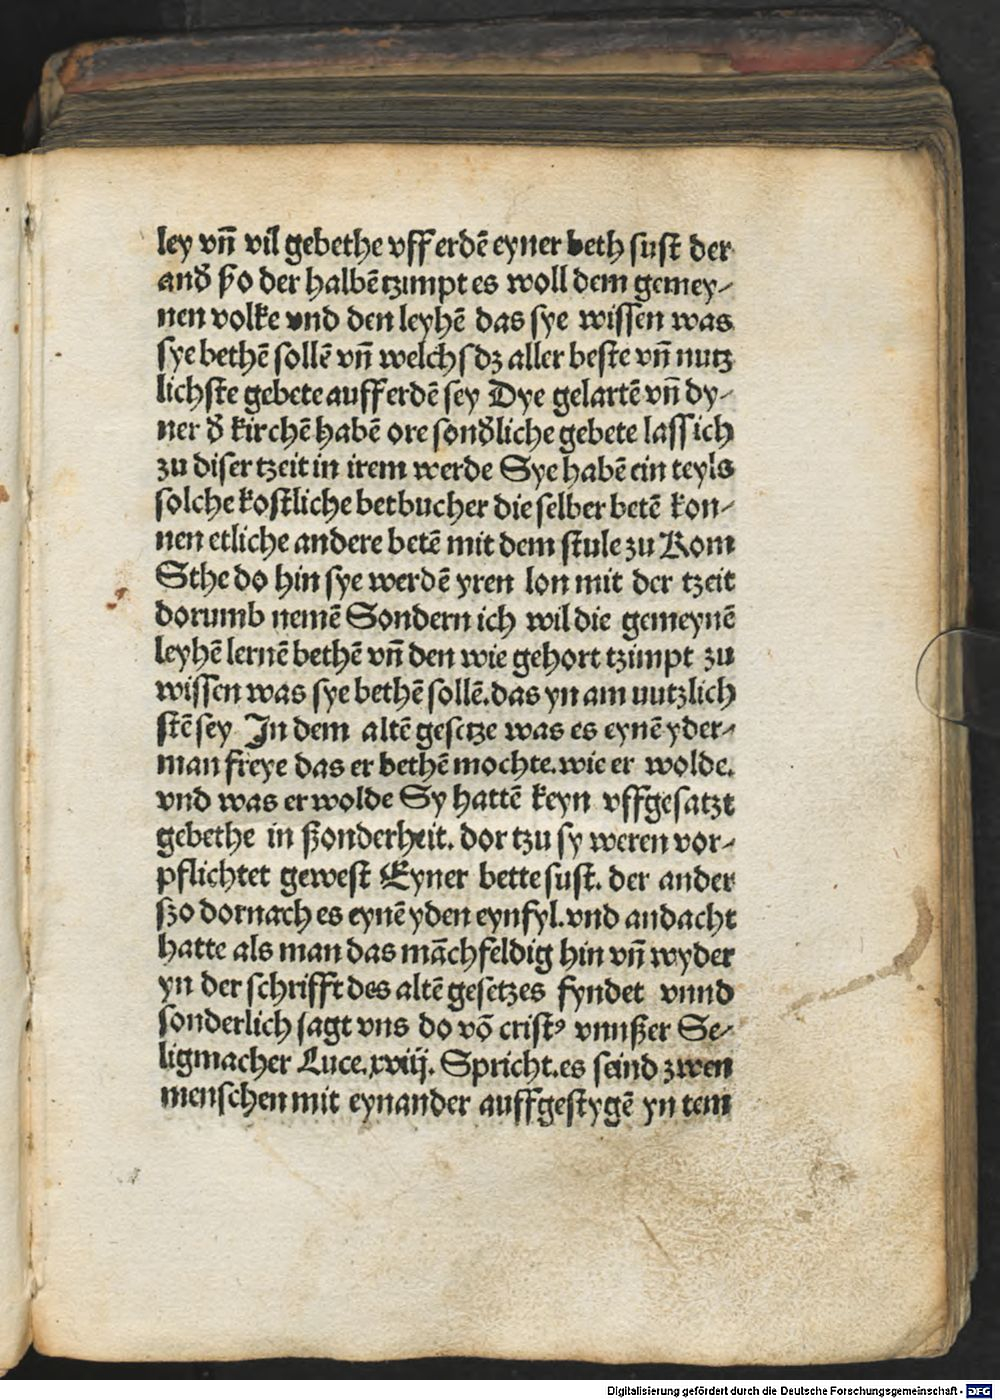 ley vn̄ vil gebethe vff erdē eyner beth sust der
and̕ ßo der halbē tzimpt es woll dem gemey-
nen volke vnd den leyhē das sye wissen was
sye bethē sollē vn̄ welchs dz aller beste vn̄ nutz
lichste gebete auff erdē sey Dye gelartē vn̄ dy-
ner d̕ kirchē habē ore sond̕liche gebete lass ich
zu diser tzeit in irem werde Sye habē ein teyls
solche kostliche betbucher die selber betē kon-
nen etliche andere betē mit dem stule zu Rom
Sthe do hin sye werdē yren lon mit der tzeit
dorumb nemē Sondern ich wil die gemeynē
leyhē lernē bethē vn̄ den wie gehort tzimpt zu
wissen was sye bethē sollē.das yn am uutzlich
stē sey In dem altē gesetze was es eynē yder-
man freye das er bethē mochte.wie er wolde.
vnd was er wolde Sy hattē keyn vffgesatzt
gebethe in ßonderheit. dor tzu sy weren vor-
pflichtet gewest Eyner bette sust. der ander
ßzo dornach es eynē yden eynfyl.vnd andacht
hatte als man das māchfeldig hin vn̄ wyder
yn der schrifft des altē gesetzes fyndet vnnd
sonderlich sagt vns do vō cristꝰ vnnßer Se-
ligmacher Luce.xviij. Spricht.es seind zwen
menschen mit eynander auffgestygē yn tem
Digitalisierung gefördert durch die Deutsche Forschungsgemeinschaft - DFG